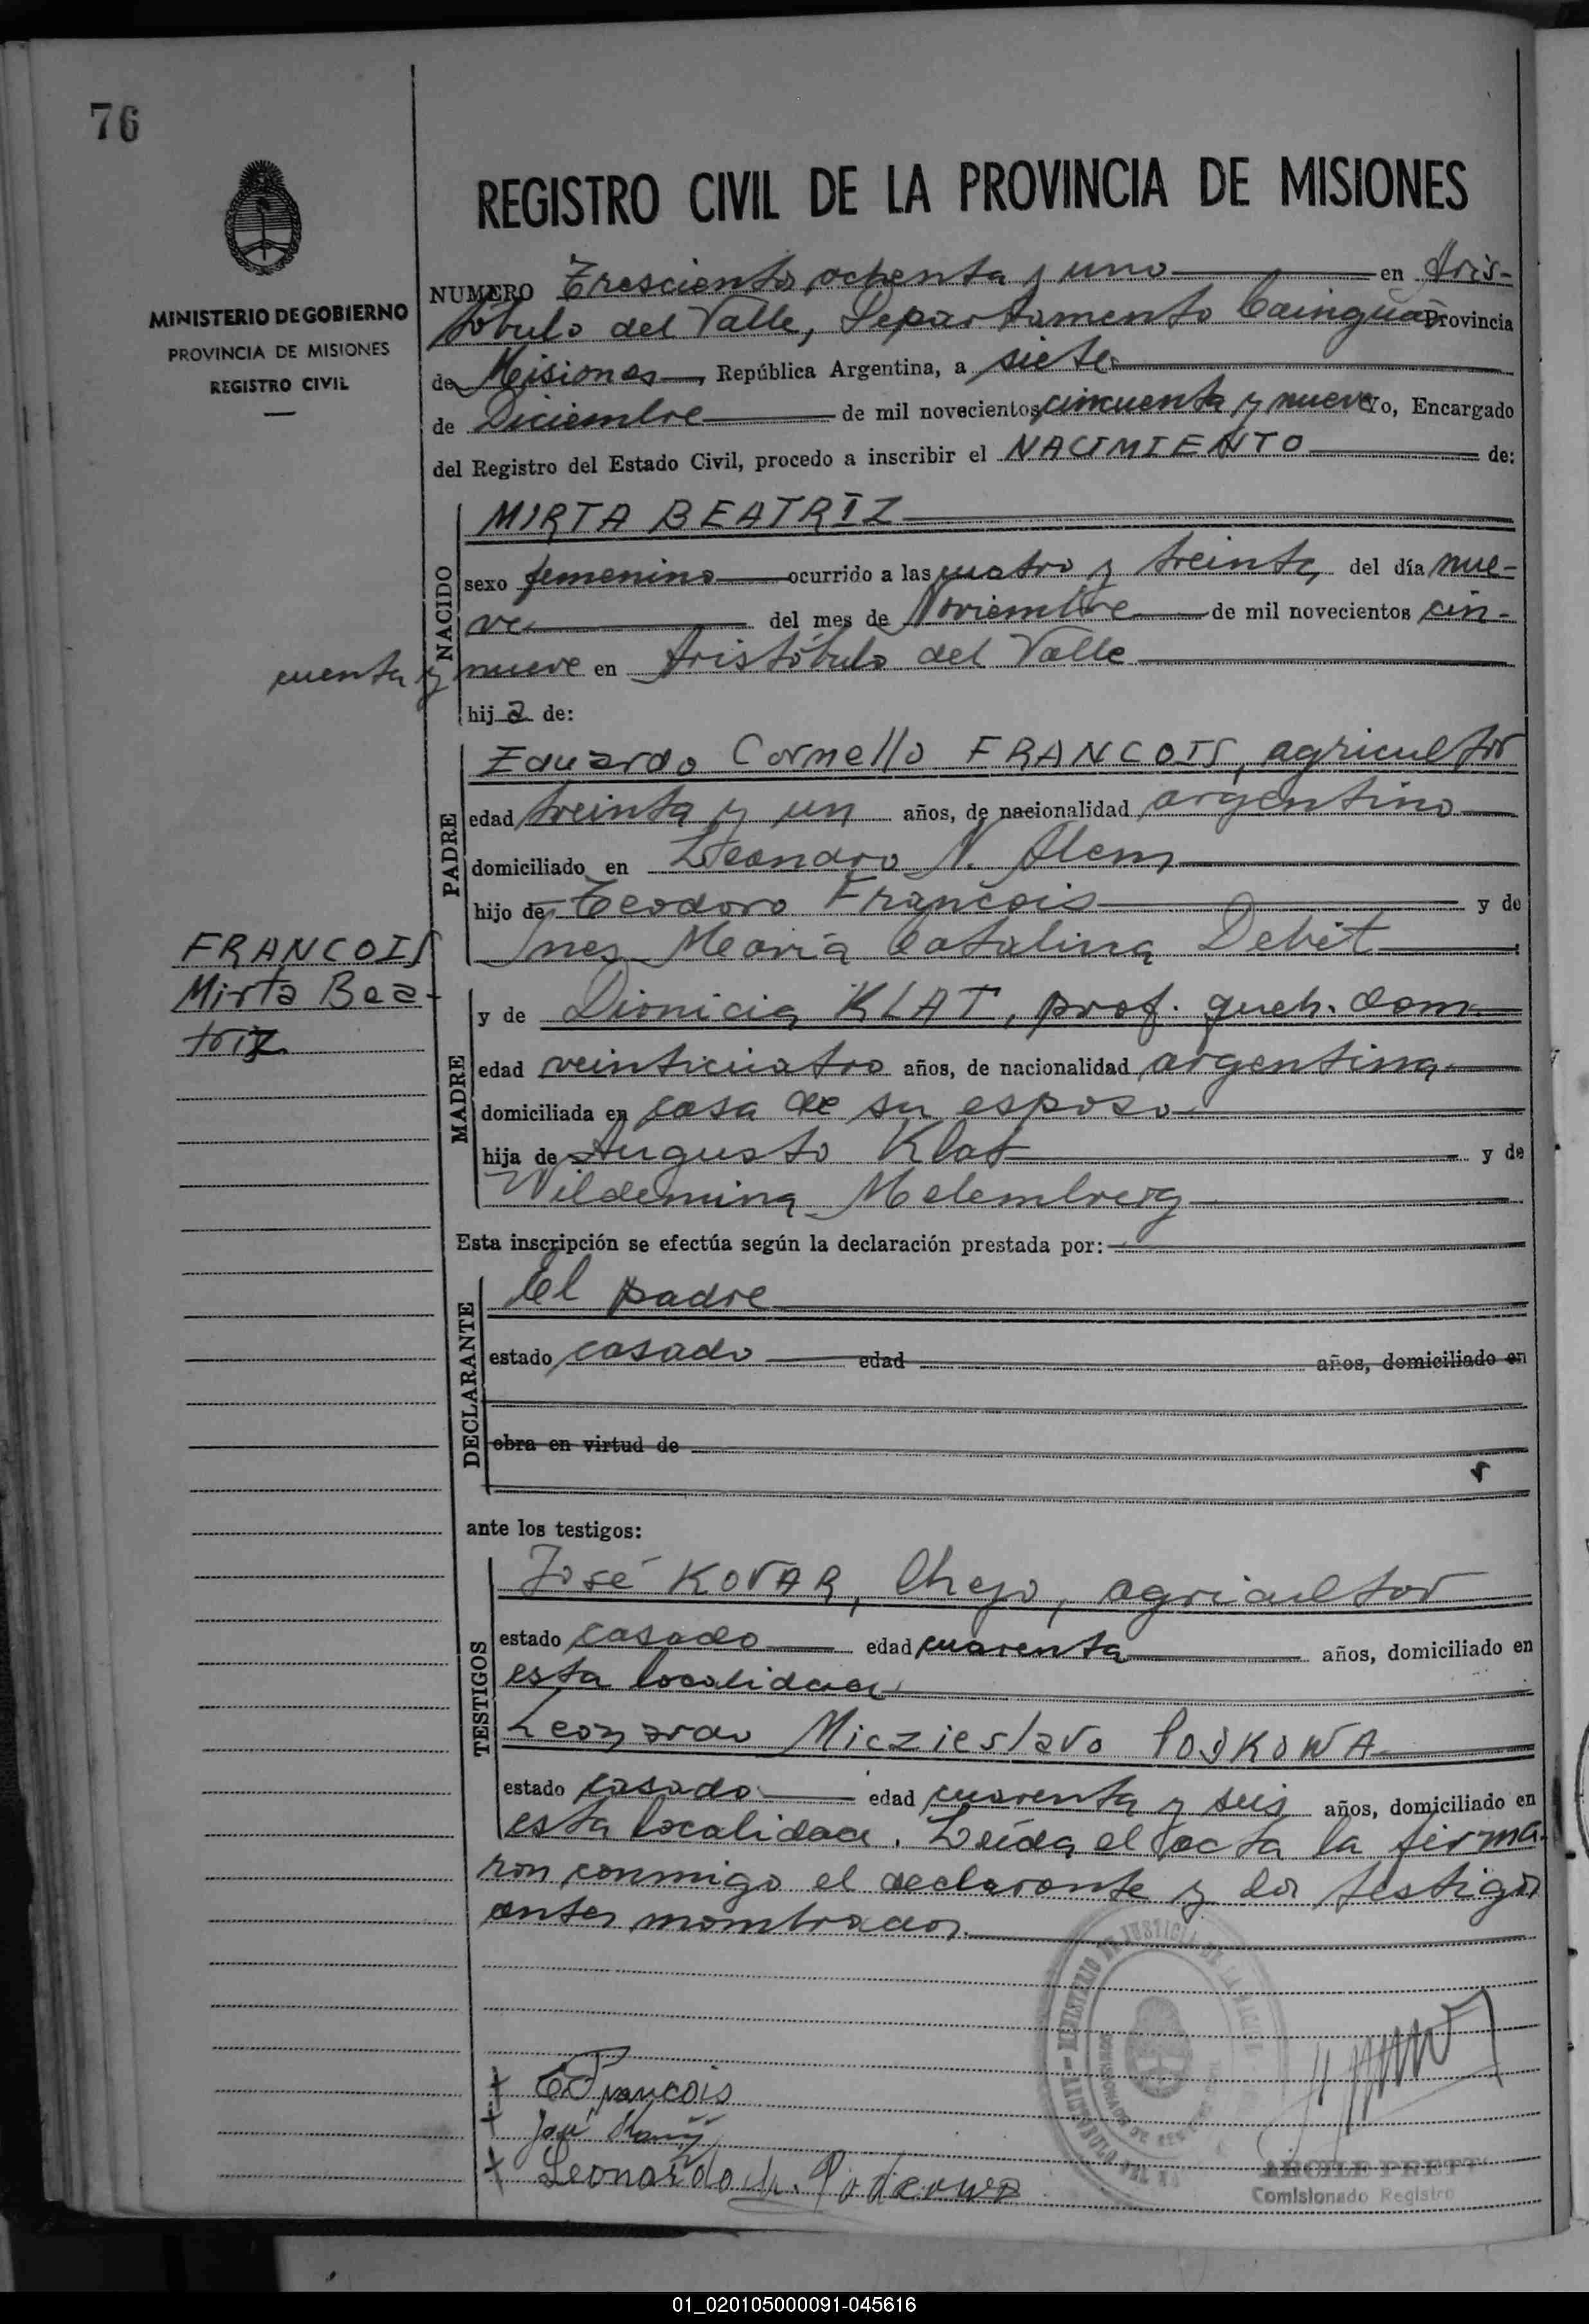 76
MINISTERIO DE GOBIERNO
PROVINCIA DE MISIONES
REGISTRO CIVIL
REGISTRO CIVIL DE LA PROVINCIA DE MISIONES
NUMERO Trescientos ochenta y uno en Aris-
tóbulo del Valle, Departamento Cainguás Provincia
de Misiones, República Argentina, a siete
de Diciembre de mil novecientos cincuenta y nueve Yo, Encargado
del Registro del Estado Civil, procedo a inscribir el NACIMIENTO de:
NACIDO
MIRTA BEATRIZ
sexo femenino ocurrido a las cuatro y treinta del día nue-
ve del mes de Noviembre de mil novecientos cin-
cuenta y nueve en Aristóbulo del Valle
hija de:
PADRE
Eduardo Cornello FRANCOIS, agricultor
edad treinta y un años, de nacionalidad argentino
domiciliado en Leandro N. Alem
hijo de Teodoro Francois y de
Ines María Catalina Debét
FRANCOIS
Mirta Bea-
triz
MADRE
y de Dionicia KLAT, prof. queh. dom.
edad veinticuatro años, de nacionalidad argentina
domiciliada en casa de su esposo
hija de Augusto Klat y de
Wildemina Melemberg
Esta inscripción se efectúa según la declaración prestada por:
DECLARANTE
El padre
estado casado edad años, domiciliado en
obra en virtud de
ante los testigos:
TESTIGOS
José KOVAR, Checo, agricultor
estado casado edad cuarenta años, domiciliado en
esta localidad
Leonardo Miczieslavo
estado casado edad cuarenta y seis años, domiciliado en
esta localidad. Leída el acta la firma-
ron conmigo el declarante y los testigos
antes nombrados.
E Francois
José
Leonardo M.
MINISTERIO DE JUSTICIA DE LA
ARISTOBULO DEL
Comisionado Registro
01_020105000091-045616